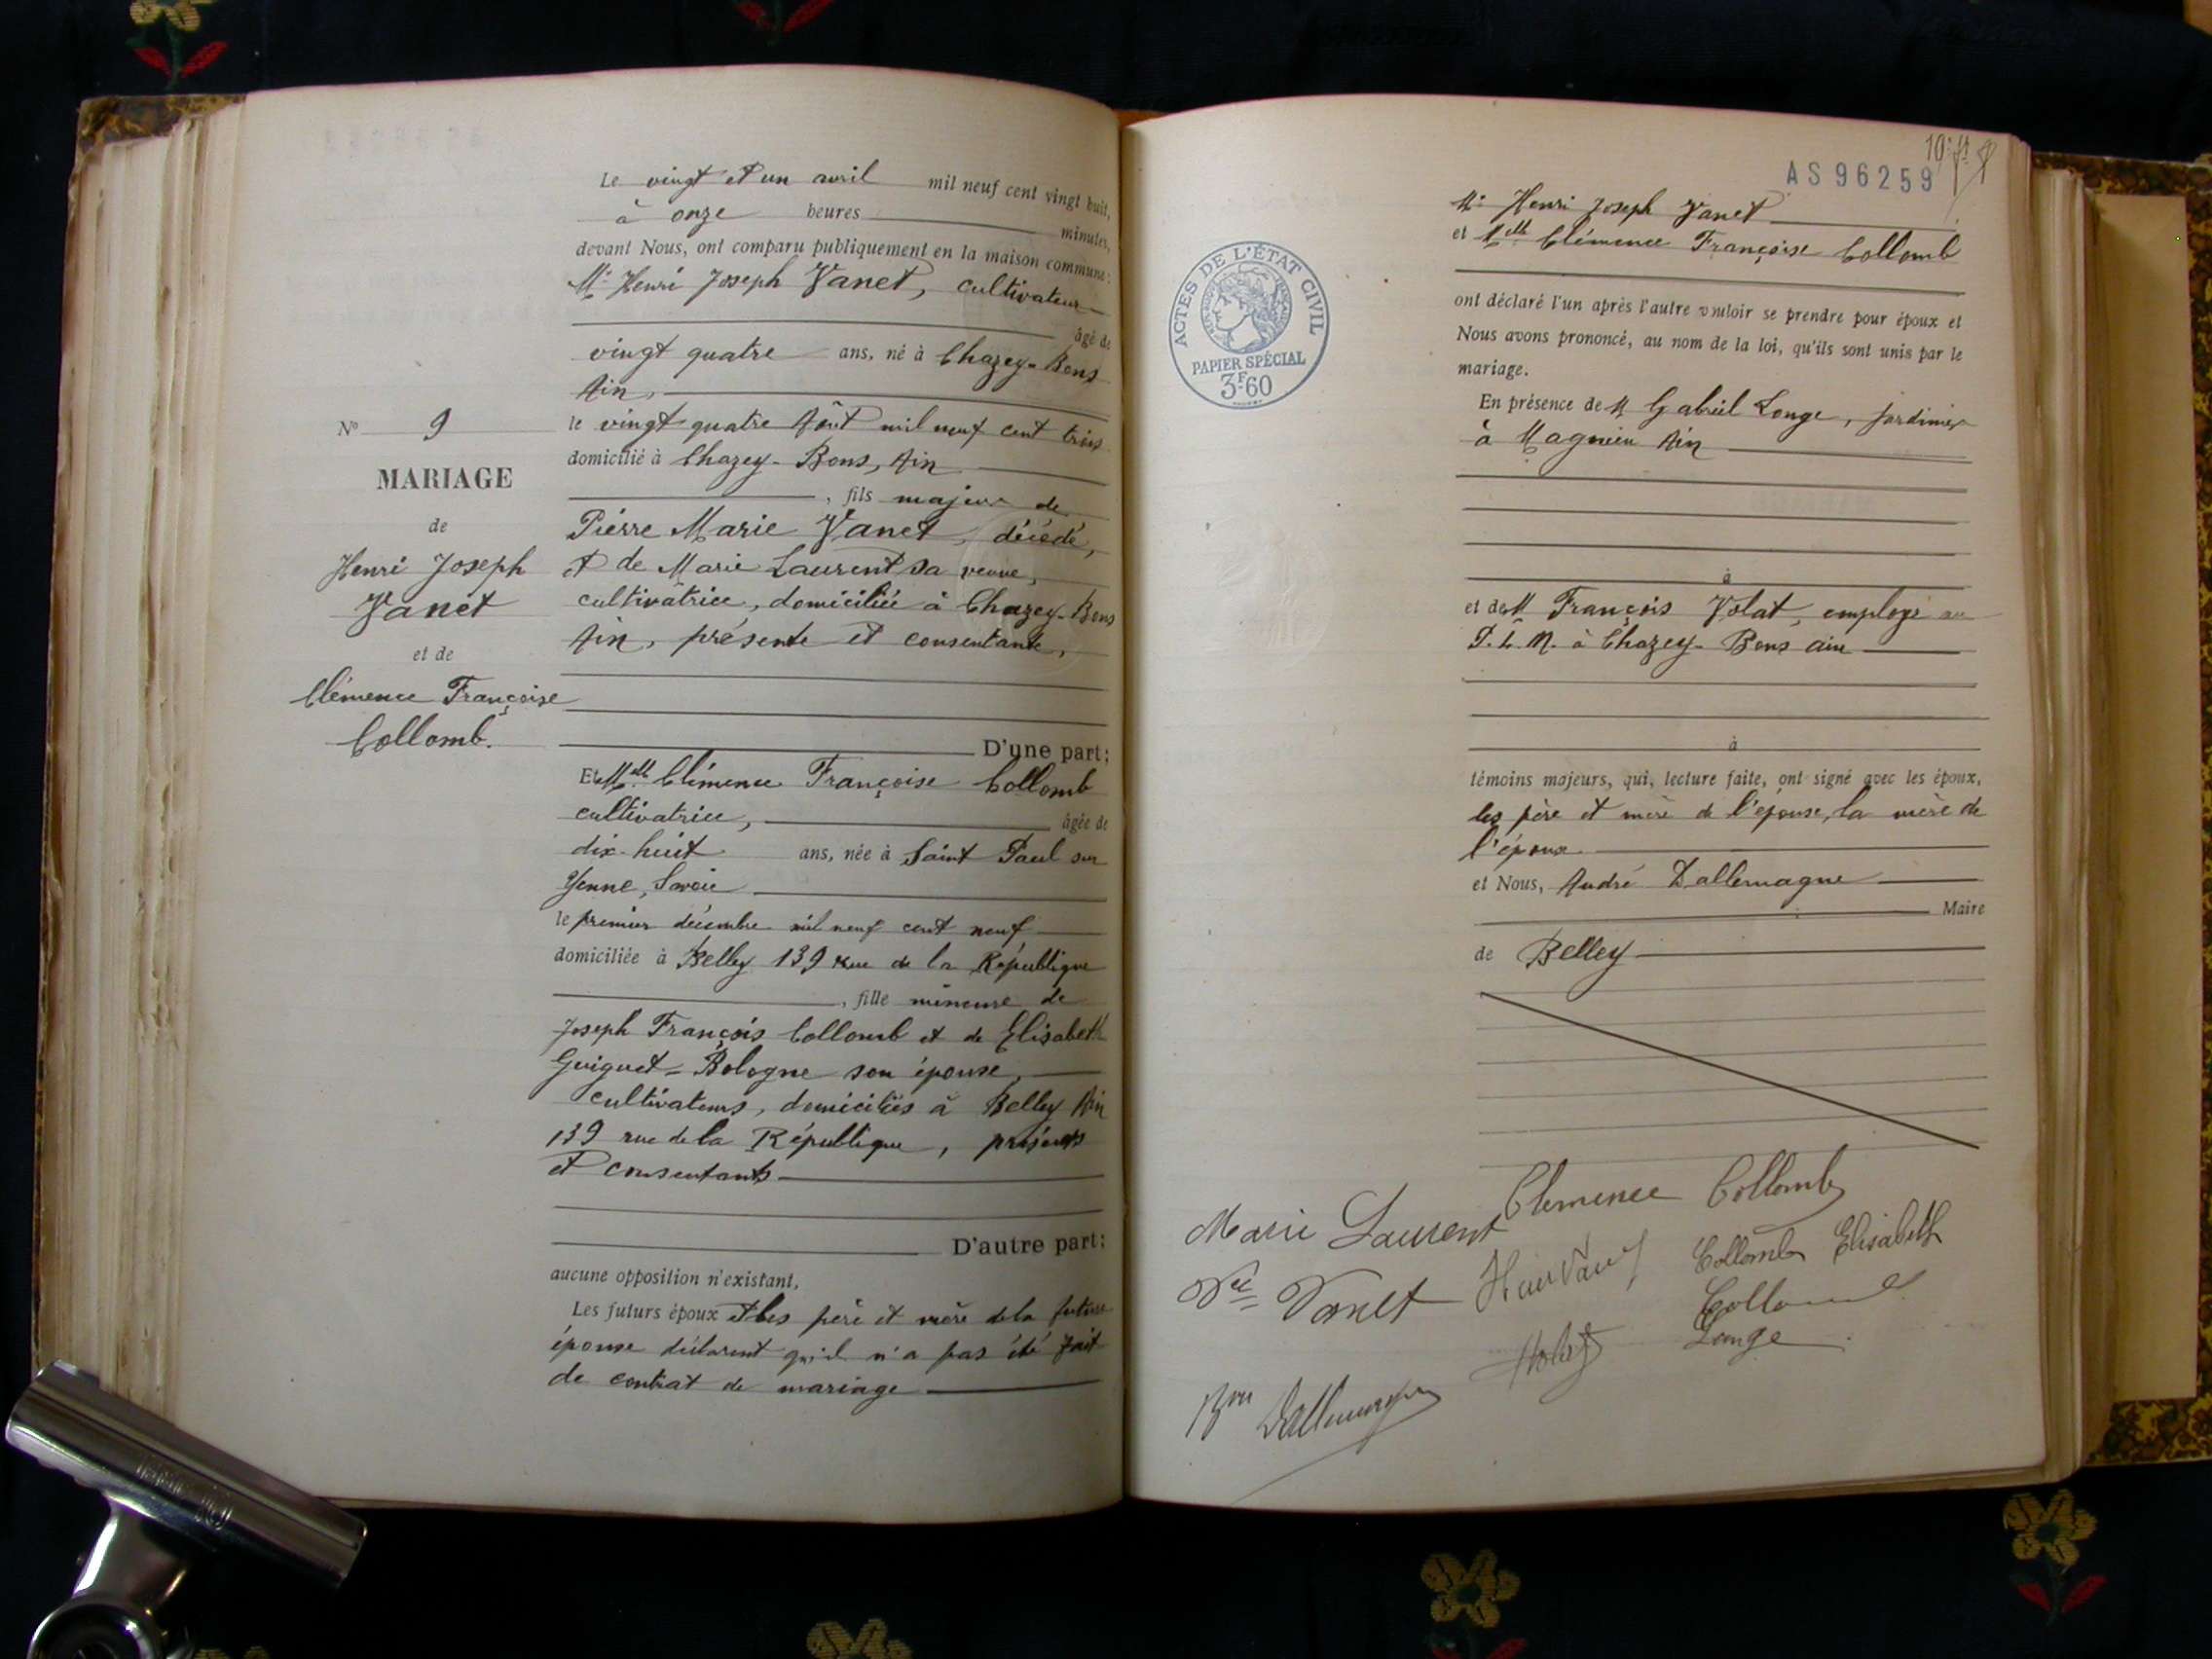 Le vingt et un avril mil neuf cent vingt huit,
à onze heures minutes,
devant Nous, ont comparu publiquement en la maison commune:
Mr Henri Joseph Vanet, cultivateur
âgé de
vingt quatre ans, né à Chazey-Bons
Ain,
le vingt quatre Août mil neuf cent trois
domicilié à Chazey-Bons, Ain
, fils majeur de
Pierre Marie Vanet, décédé,
et de Marie Laurent sa veuve,
cultivatrice, domiciliée à Chazey-Bons
Ain, présente et consentante,
D'une part;
Et Melle Clémence Françoise Collomb
cultivatrice, âgée de
dix-huit ans, née à Saint Paul sur
Yenne, Savoie
le premier décembre mil neuf cent neuf
domiciliée à Belley 139 rue de la République
, fille mineure de
Joseph François Collomb et de Elisabeth
Guiguet-Bologne son épouse,
cultivateurs, domiciliés à Belley Ain
139 rue de la République, présents
et consentants
D'autre part;
aucune opposition n'existant,
Les futurs époux et les père et mère de la future
épouse déclarent qu'il n'a pas été fait
de contrat de mariage
No 9
MARIAGE
de
Henri Joseph
Vanet
et de
Clémence Françoise
Collomb.
AS96259
ACTES DE L'ÉTAT CIVIL
PAPIER SPÉCIAL
3F60
Mr Henri Joseph Vanet
et Melle Clémence Françoise Collomb
ont déclaré l'un après l'autre vouloir se prendre pour époux et
Nous avons prononcé, au nom de la loi, qu'ils sont unis par le
mariage.
En présence de M Gabriel Longe, jardinier
à Magnieu Ain
à
et de M François Volat, employé au
P.L.M. à Chazey-Bons ain
à
témoins majeurs, qui, lecture faite, ont signé avec les époux,
les père et mère de l'épouse, la mère de
l'époux
et Nous, André Dallemagne
Maire
de Belley
Clemence Collomb
Marie Laurent
Collomb Elisabeth
Vve Vanet
Henri Vanet
Collomb
Longe
Volat
Bon Dallemagne